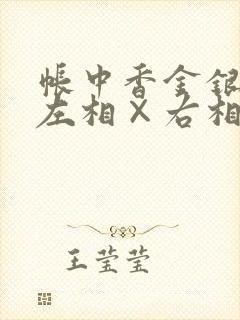 帐中香金银
左相×右相
王莹莹